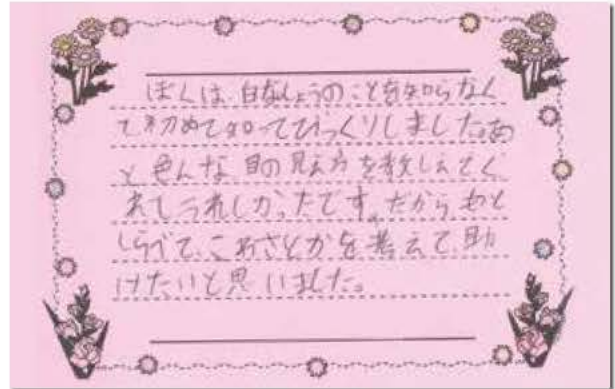 ぼくは、白なしょうのことを知らなく
て初めて知ってびっくりしました。あ
と色んな目の見え方を教しえてく
れてうれしかったです。だからもと
しらべて、こわさとかを考えて助
けたいと思いました。